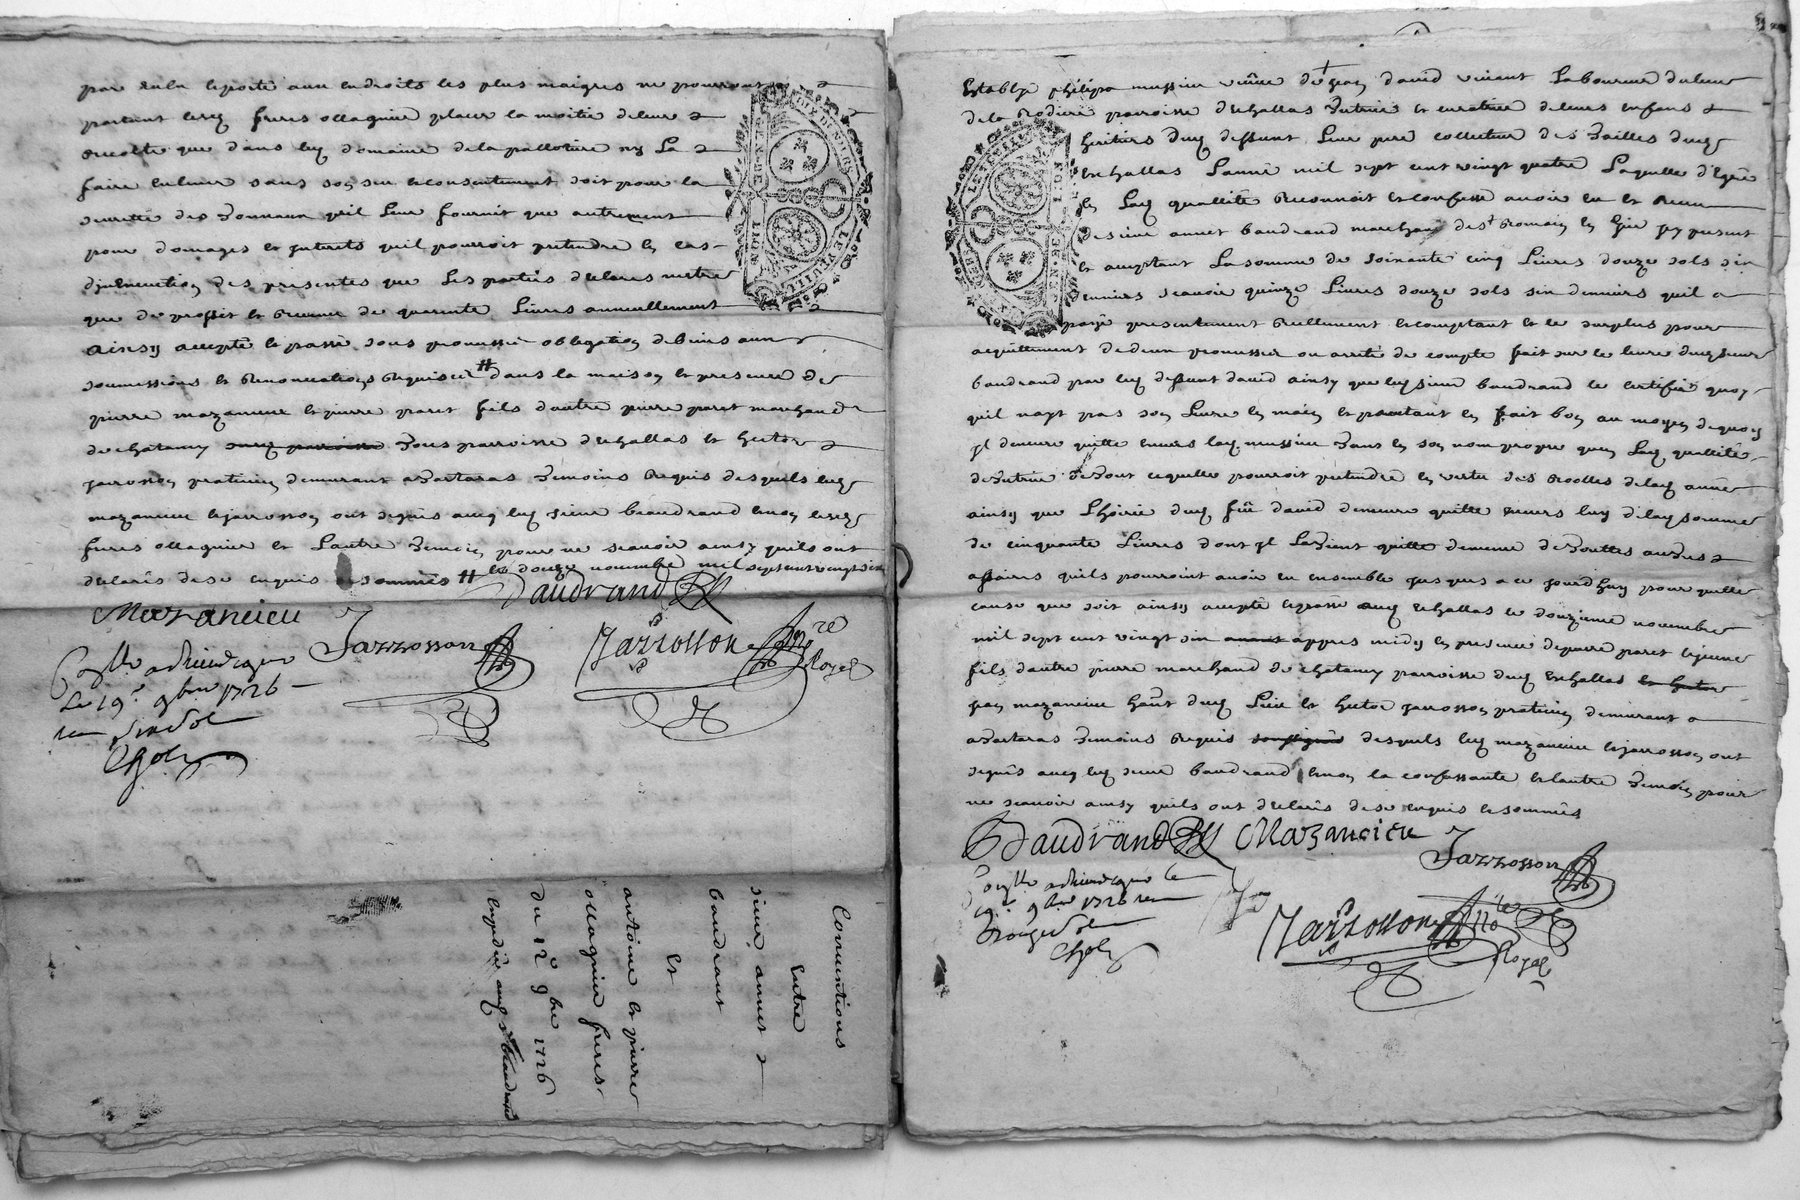 par dela leposte aux endroits les plus maigres ne pourront
partant lesd freres ollagnier placer la moitie deleur
recolte que dans led domaine de la pallotiere ny La
faire enlever sans son seu et consentement soit pour la
seurette des Tonneaux quil Leur fournit que autrement
pour domages et Interets quil pourroit pretendre En cas
dinexecution des presentes que Les parties declares nestre
que de proffit et revenu de quarente Livres annuellement
Ainsy accepté et passé sous promesse obligation de biens aux
soumissions et Renonciations Requises # dans la maison et presence de
pierre mazancieu et pierre paret fils dautre pierre paret marchand
de chatamy Tous parroisse dechallas et hector
jarrosson praticien demeurant a Tartaras Temoins Requis desquels led
mazancieu et jarrosson ont signés avec led sieur beaudrand non lesd
freres ollagnier et Lautre Temoin pour ne scavoir ainsy quils ont
declarés de ce enquis et sommés # le douze novembre mil sept cent vingt six
Baudrand
Mazancieu
Jarrosson
Jarrosson No re Royal
Con lle a Rivedegier
Le 19e 9bre 1726
Conventions
Entre
sieur annet
baudrant
Et
antoine et pierre
ollagnier freres
du 12e 9bre 1726
Expedié aud Sr beaudrand
Establye philippa mussieu veuve de jean david vivant Laboureur de lieu
de la Rodiere parroisse dechallas Tutrice et curatrice deleurs enfans
heritiers dud deffunt Leur pere collecteur des Tailles dud
Echallas Lannée mil sept cent vingt quatre Laquelle d'Egré
En Lad quallité Reconnoit et confesse avoir eu et Receu
de sieur annet baudrand marchand de st Romain En Gier icy present
et acceptant La somme de soixante cinq Livres douze sols six
denniers scavoir quinze Livres douze sols six denniers quil a
payé presentement Reellement et comptant et le surplus pour
acquittement de deux promesses ou arrêté de compte fait sur le livre dud sieur
baudrand par led deffunt david ainsy que led sieur baudrand le certifie quoy
quil nayt pas son Livre En main et partant En fait bon au moyen de quoy
Il demeure quitte envers lad mussieu Tant En son nom propre quen Lad quallité
de Tutrice de Tout ce quelle pourroit pretendre En vertu des Roolles delad année
ainsy que Lhoirie dud feu david demeure quitte envers luy de lad somme
de cinquante Livres dont Il La Tient quitte dememe de Touttes autres
affaires quils pourroint avoir eu ensemble jusques a ce jourdhuy pour quelle
cause que soit ainsy accepté et passé aud Echallas le douzieme novembre
mil sept cent vingt six appres midy En presence de pierre paret le jeune
fils dautre pierre marchand de chatamy parroisse dud Echallas
jean mazancieu hant dud Lieu et hector jarrosson praticien demeurant a
a Tartaras Temoins Requis desquels led mazancieu et jarrosson ont
signés avec led sieur baudrand non la confessante et lautre Temoin pour
ne scavoir ainsy quils ont declarés de ce enquis et sommés
Baudrand Mazancieu
Jarrosson
Con lle a Rivedegier le
19e 9bre 1726
Jarrosson No re Royal